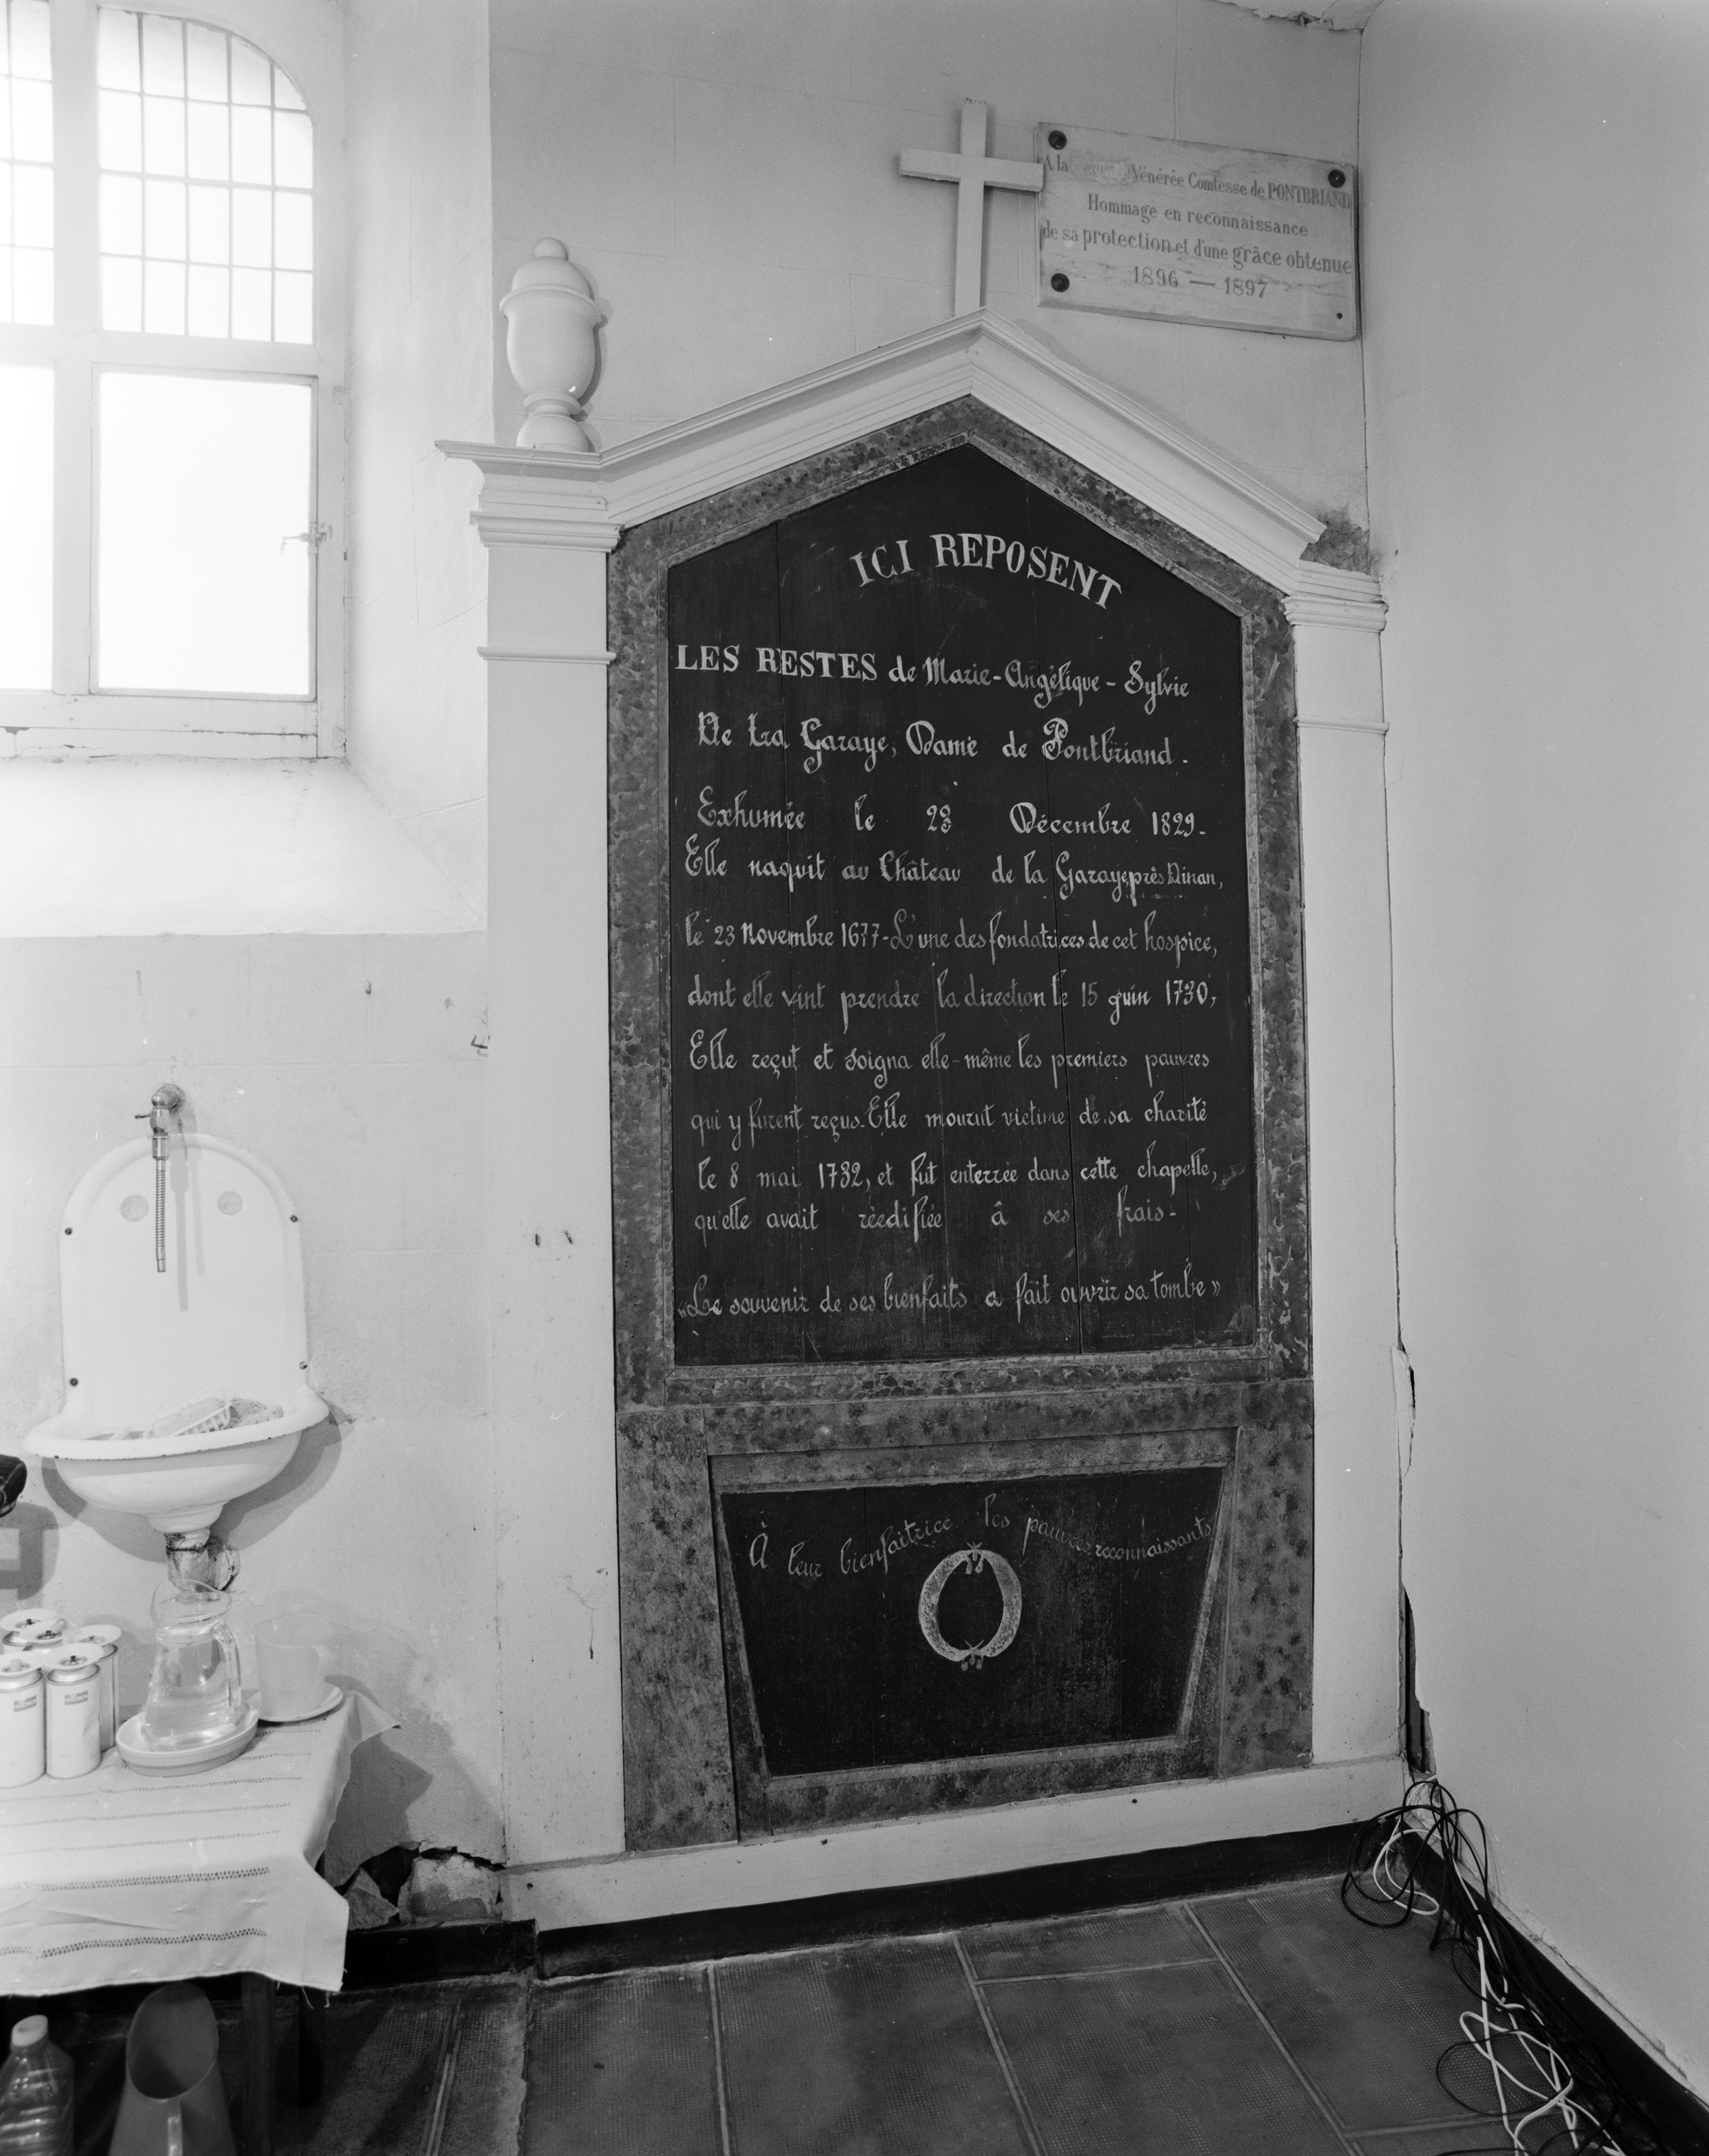 A la Vénérée Comtesse de PONTBRIAND
Hommage en reconnaissance
de sa protection et d'une grâce obtenue
1896 — 1897
ICI REPOSENT
LES RESTES de Marie-Angélique-Sylvie
De La Garaye, Dame de Pontbriand.
Exhumée le 23 Décembre 1829-
Elle naquit au Château de la Garaye, près Dinan,
le 23 Novembre 1677- L'une des fondatrices de cet hospice,
dont elle vint prendre la direction le 15 juin 1730,
Elle reçut et soigna elle-même les premiers pauvres
qui y furent reçus. Elle mourut victime de sa charité
le 8 mai 1732, et fut enterrée dans cette chapelle,
qu'elle avait réédifiée â ses frais-
«Le souvenir de ses bienfaits a fait ouvrir sa tombe»
À leur bienfaitrice les pauvres reconnaissants